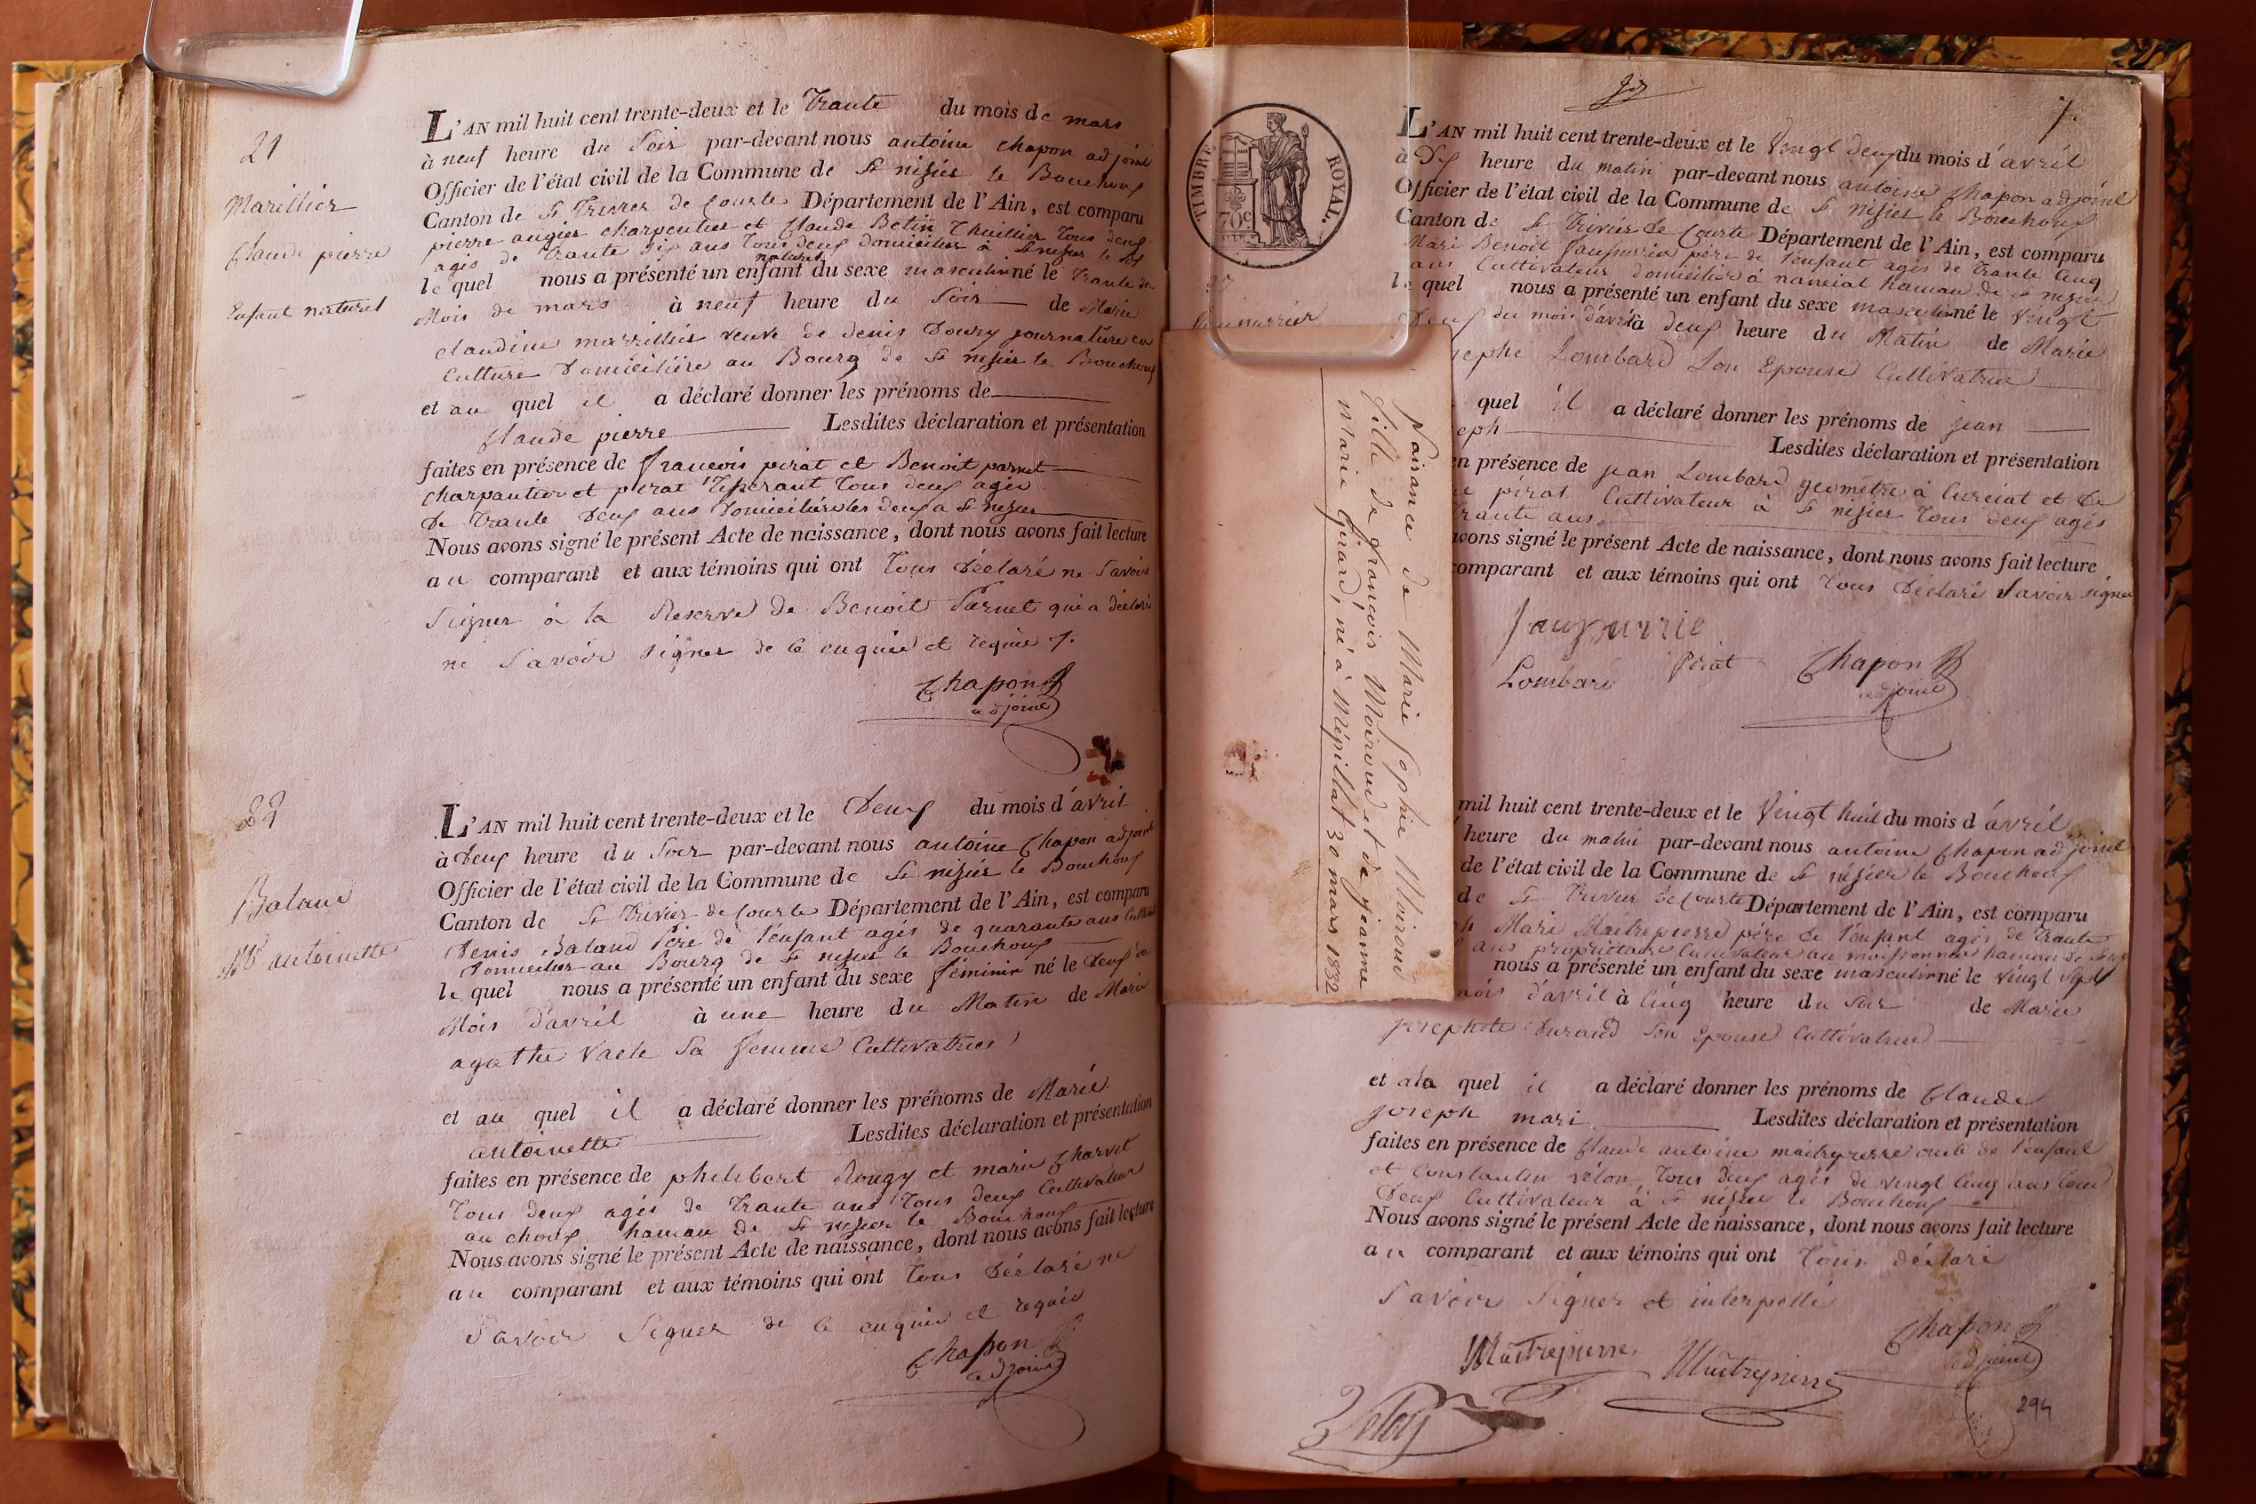 21
Marillier
Claude pierre
Enfant naturel
L'AN mil huit cent trente-deux et le Trante du mois de mars
à neuf heure du Soir par-devant nous antoine Chapon adjoint
Officier de l'état civil de la Commune de St nisier le Bouchoux
Canton de St Trivier de Courte Département de l'Ain, est comparu
pierre augier charpentier et Claude Betin Thuillier Tous deux
agés de Trante six ans Tous deux domicilier à St nisier le
le quel nous a présenté un enfant naturel du sexe masculin né le Trante du
Mois de mars à neuf heure du Soir de Marie
claudine marillier veuve de denis Doury journalière en
Culture Domicilière au Bourg de St nisier le Bouchoux
et au quel il a déclaré donner les prénoms de
Claude pierre Lesdites déclaration et présentation
faites en présence de francois pirat et Benoit parnet
charpantier et pirat Tisserant Tous deux agés
De Trante Deux ans Domiciliés les deux a St nisier
Nous avons signé le présent Acte de naissance, dont nous avons fait lecture
au comparant et aux témoins qui ont Tous Déclaré ne Savoir
Signer à la Reserve de Benoit Parnet qui a déclaré
ne Savoir signer de ce enquis et requis
Chapon
adjoint
22
Baland
Mie antoinette
L'AN mil huit cent trente-deux et le Deux du mois d'avril
à Deux heure du Soir par-devant nous antoine Chapon adjoint
Officier de l'état civil de la Commune de St nisier le Bouchoux
Canton de St Trivier de Courte Département de l'Ain, est comparu
Denis Baland Père de l'enfant agés de quarante ans
Domicilier au Bourg de St nisier le Bouchoux
le quel nous a présenté un enfant du sexe féminin né le Deux du
Mois d'avril à une heure du Matin de Marie
agathe Vacle Sa femme Cultivatrice
et au quel il a déclaré donner les prénoms de Marie
antoinette Lesdites déclaration et présentation
faites en présence de philibert Rougy et marie Charvet
Tous deux agés de Trante ans Tous deux Cultivateur
au choux hamau de St nisier le Bouchoux
Nous avons signé le présent Acte de naissance, dont nous avons fait lecture
au comparant et aux témoins qui ont Tous Déclaré ne
Savoir Signer de ce enquis et requis
Chapon
adjoint
TIMBRE ROYAL
70c
7
L'AN mil huit cent trente-deux et le Vingt deux du mois d'avril
à Dix heure du matin par-devant nous antoine Chapon adjoint
Officier de l'état civil de la Commune de St Nisier le Bouchoux
Canton de St Trivier De Courte Département de l'Ain, est comparu
Mari Benoit père de l'enfant agés de Trante Cinq
ans Cultivateur domicilier à nanciat hamau de St nisier
le quel nous a présenté un enfant du sexe masculin né le Vingt
Deux du mois d'avril à deux heure du Matin de Marie
sephe Lombard Son Epouse Cultivatrice
quel il a déclaré donner les prénoms de jean
seph Lesdites déclaration et présentation
en présence de jean Lombard géomètre à Curciat et De
pirat Cultivateur à St nisier Tous deux agés
trante ans
avons signé le présent Acte de naissance, dont nous avons fait lecture
comparant et aux témoins qui ont Tous Déclaré Savoir signer
Lombard Pirat Chapon
adjoint
Naissance de Marie Sophie Moiroud
fille de françois Moiroud et de jeanne
Marie Girard, né à Mépillat 30 mars 1832
mil huit cent trente-deux et le Vingt huit du mois d'avril
heure du matin par-devant nous antoine Chapon adjoint
de l'état civil de la Commune de St nisier le Bouchoux
de St Trivier de Courte Département de l'Ain, est comparu
Mari Maitrepierre père de l'enfant agés de Trante
ans propriétaire Cultivateur au hamau de
nous a présenté un enfant du sexe masculin né le vingt sept
mois d'avril à Cinq heure du Soir de Marie
josephete Durand Son Epouse Cultivatrice
et ala quel il a déclaré donner les prénoms de Claude
joseph mari Lesdites déclaration et présentation
faites en présence de Claude antoine maitrepierre oncle de l'enfant
et Constantin Velon, Tous deux agés de vingt Cinq ans
Deux Cultivateur à St nisier le Bouchoux
Nous avons signé le présent Acte de naissance, dont nous avons fait lecture
au comparant et aux témoins qui ont Tous déclaré
Savoir Signer et interpellé
Maitrepierre Maitrepierre Chapon
adjoint
294